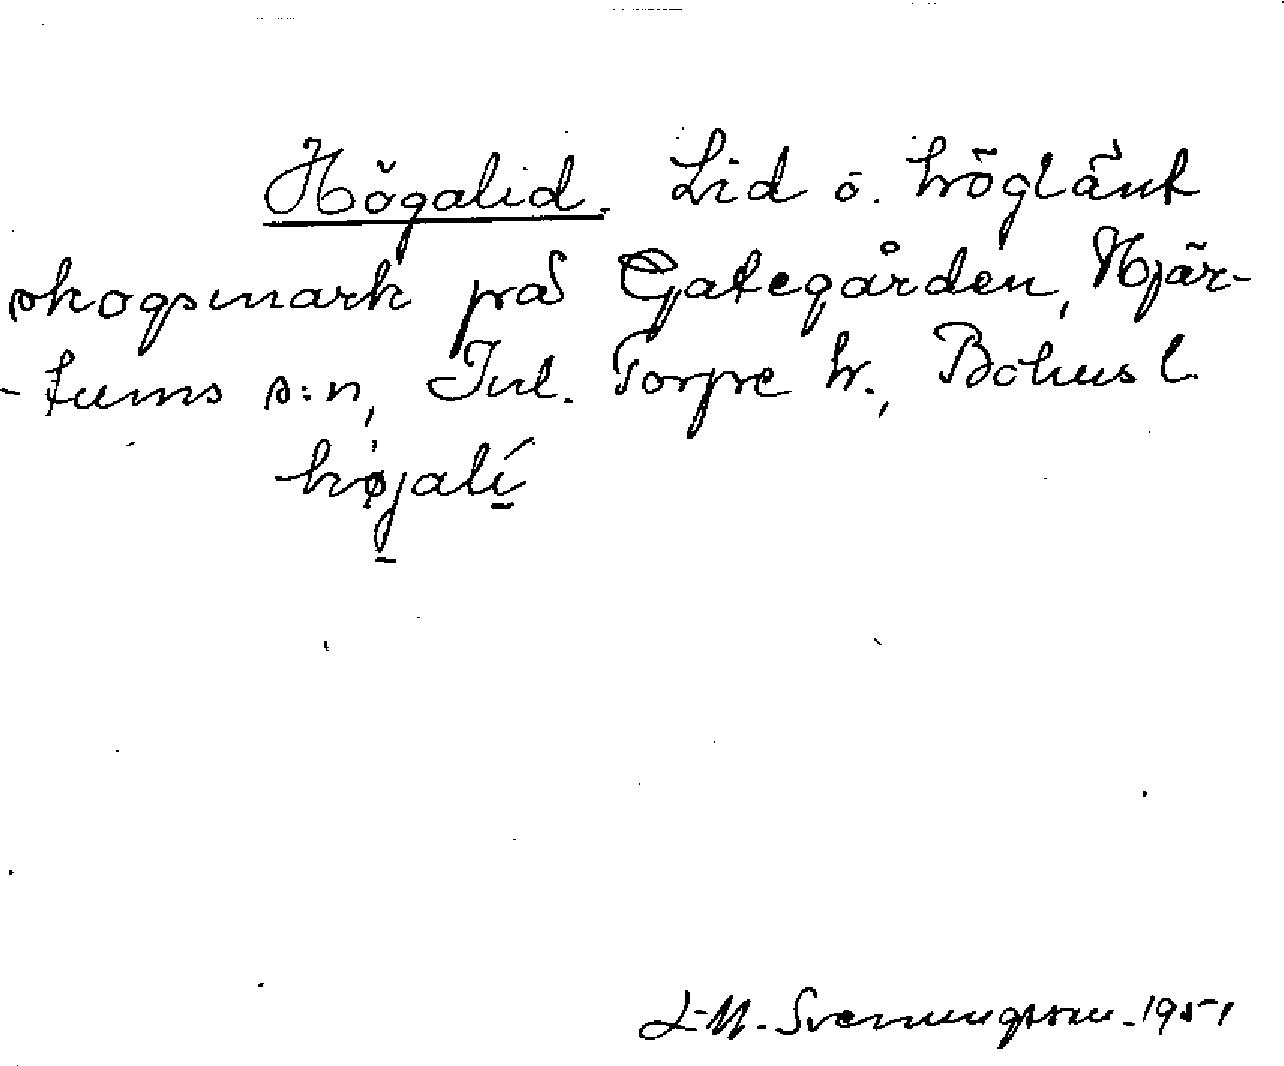 Högalid. Lid o. höglänt
skogsmark på Gategården, Hjär-
-tums s:n, Inl. Torpe hr., Bohusl.
højalí
L-M. Svenungsson-1951